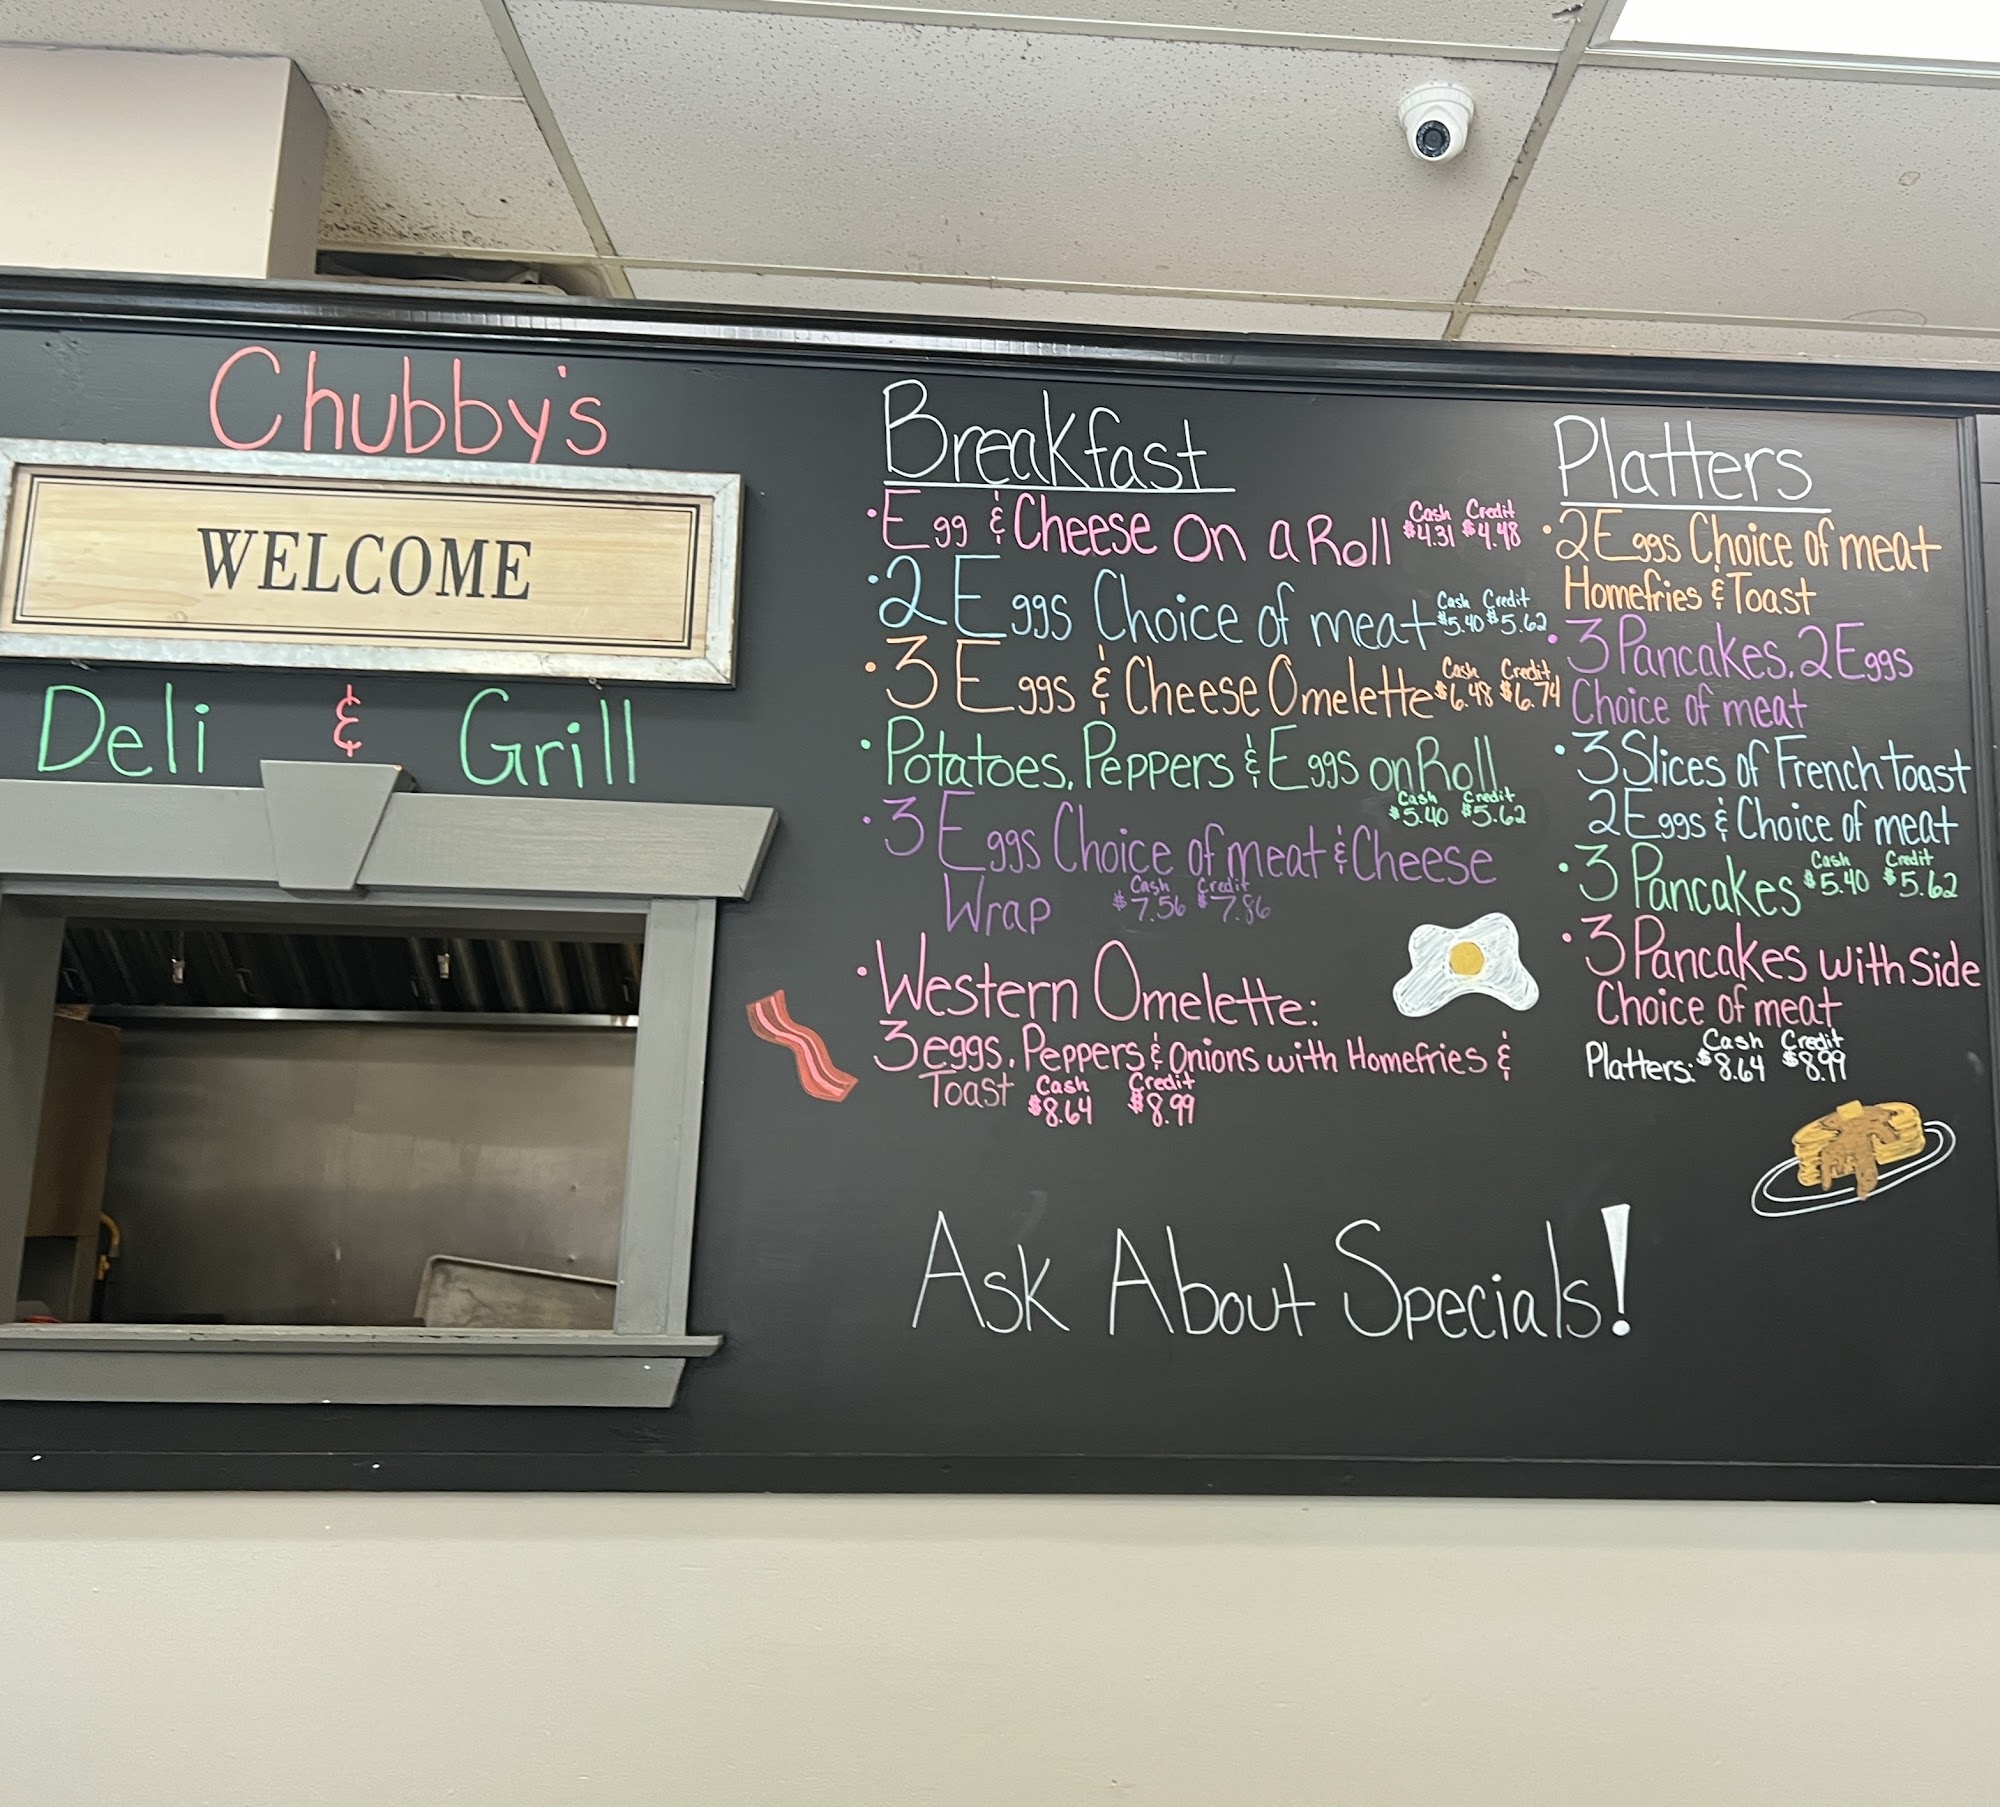 Chubby's
WELCOME
Deli & Grill
Breakfast
• Egg & Cheese on a Roll Cash $4.31 Credit $4.48
• 2 Eggs Choice of meat Cash $5.40 Credit $5.62
• 3 Eggs & Cheese Omelette Cash $6.48 Credit $6.74
• Potatoes, Peppers & Eggs on Roll
Cash $5.40 Credit $5.62
• 3 Eggs Choice of meat & Cheese
Wrap Cash $7.56 Credit $7.86
• Western Omelette:
3 eggs, Peppers & Onions with Homefries &
Toast Cash $8.64 Credit $8.99
Platters
• 2 Eggs Choice of meat
Homefries & Toast
• 3 Pancakes, 2 Eggs
Choice of meat
• 3 Slices of French Toast
2 Eggs & Choice of meat
• 3 Pancakes Cash $5.40 Credit $5.62
• 3 Pancakes with Side
Choice of meat
Platters: Cash $8.64 Credit $8.99
Ask About Specials!